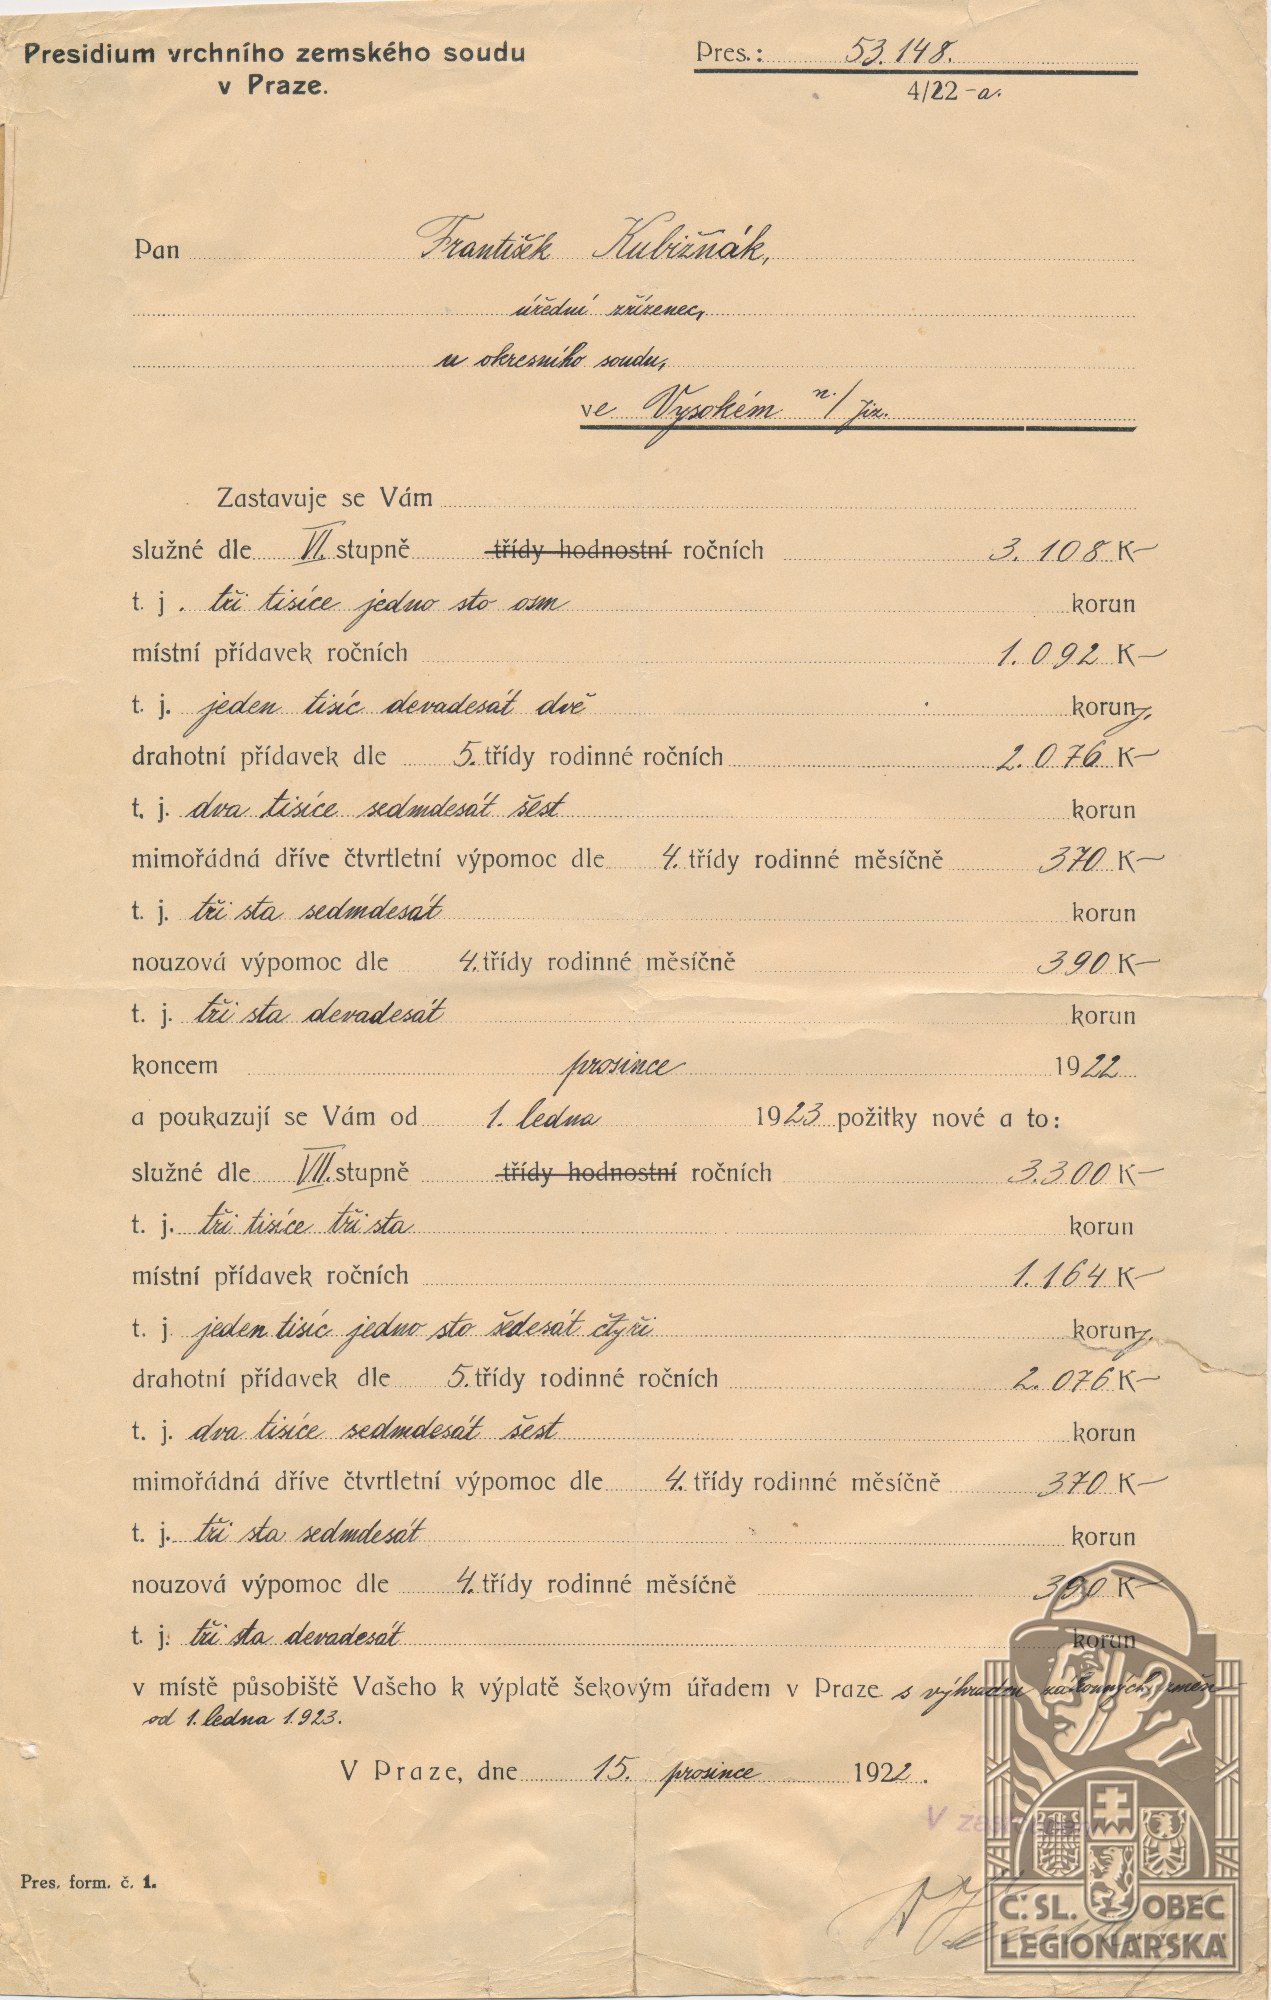 Presidium vrchního zemského soudu
v Praze.
Pres.: 53.148.
4/22-a.
Pan František Kubižňák,
úřední zřízenec,
u okresního soudu,
ve Vysokém n./Jiz.
Zastavuje se Vám
služné dle VI. stupně třídy hodnostní ročních 3.108 K—
t. j. tři tisíce jedno sto osm korun
místní přídavek ročních 1.092 K—
t. j. jeden tisíc devadesát dvě koruny.
drahotní přídavek dle 5. třídy rodinné ročních 2.076 K—
t. j. dva tisíce sedmdesát šest korun
mimořádná dříve čtvrtletní výpomoc dle 4. třídy rodinné měsíčně 370 K—
t. j. tři sta sedmdesát korun
nouzová výpomoc dle 4. třídy rodinné měsíčně 390 K—
t. j. tři sta devadesát korun
koncem prosince 1922
a poukazují se Vám od 1. ledna 1923 požitky nové a to:
služné dle VII. stupně třídy hodnostní ročních 3.300 K—
t. j. tři tisíce tři sta korun
místní přídavek ročních 1.164 K—
t. j. jeden tisíc jedno sto šedesát čtyři koruny.
drahotní přídavek dle 5. třídy rodinné ročních 2.076 K—
t. j. dva tisíce sedmdesát šest korun
mimořádná dříve čtvrtletní výpomoc dle 4. třídy rodinné měsíčně 370 K—
t. j. tři sta sedmdesát korun
nouzová výpomoc dle 4. třídy rodinné měsíčně 390 K—
t. j. tři sta devadesát korun
v místě působiště Vašeho k výplatě šekovým úřadem v Praze s výhradou zákonných změn
od 1. ledna 1.923.
V Praze, dne 15. prosince 1922.
V
Pres. form. č. 1.
Č. SL. OBEC
LEGIONÁŘSKÁ